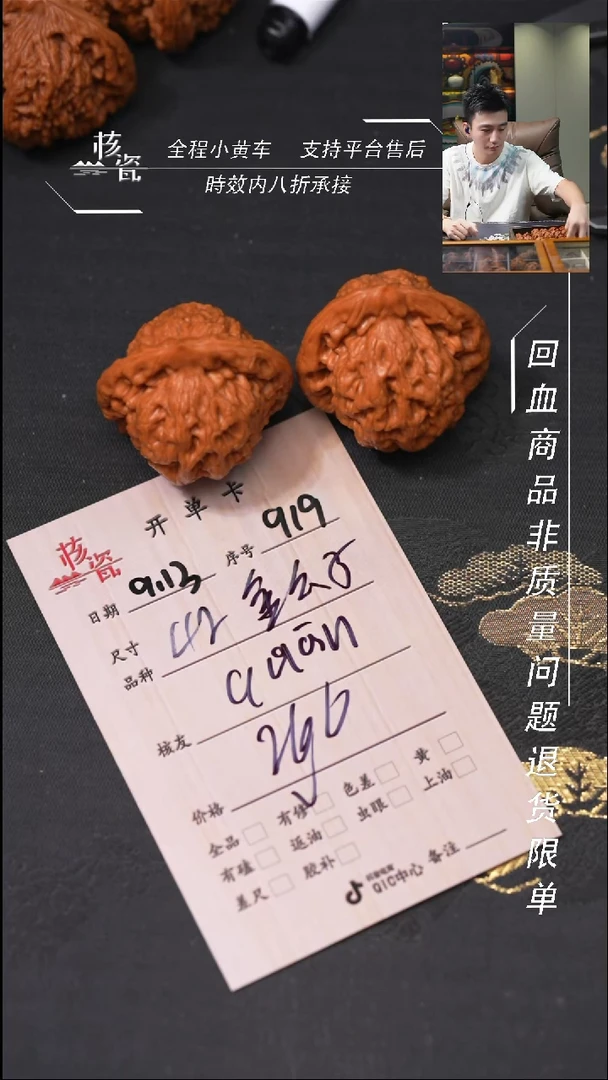 核瓷
全程小黄车 支持平台售后
時效内八折承接
回血商品非质量问题退货限单
开单卡
核瓷
日期 9.13 序号 919
尺寸 42
品种
核友
价格
全品 有修 色差 黄
有磕 返油 虫眼 上油
差尺 胶补
QIC中心 备注